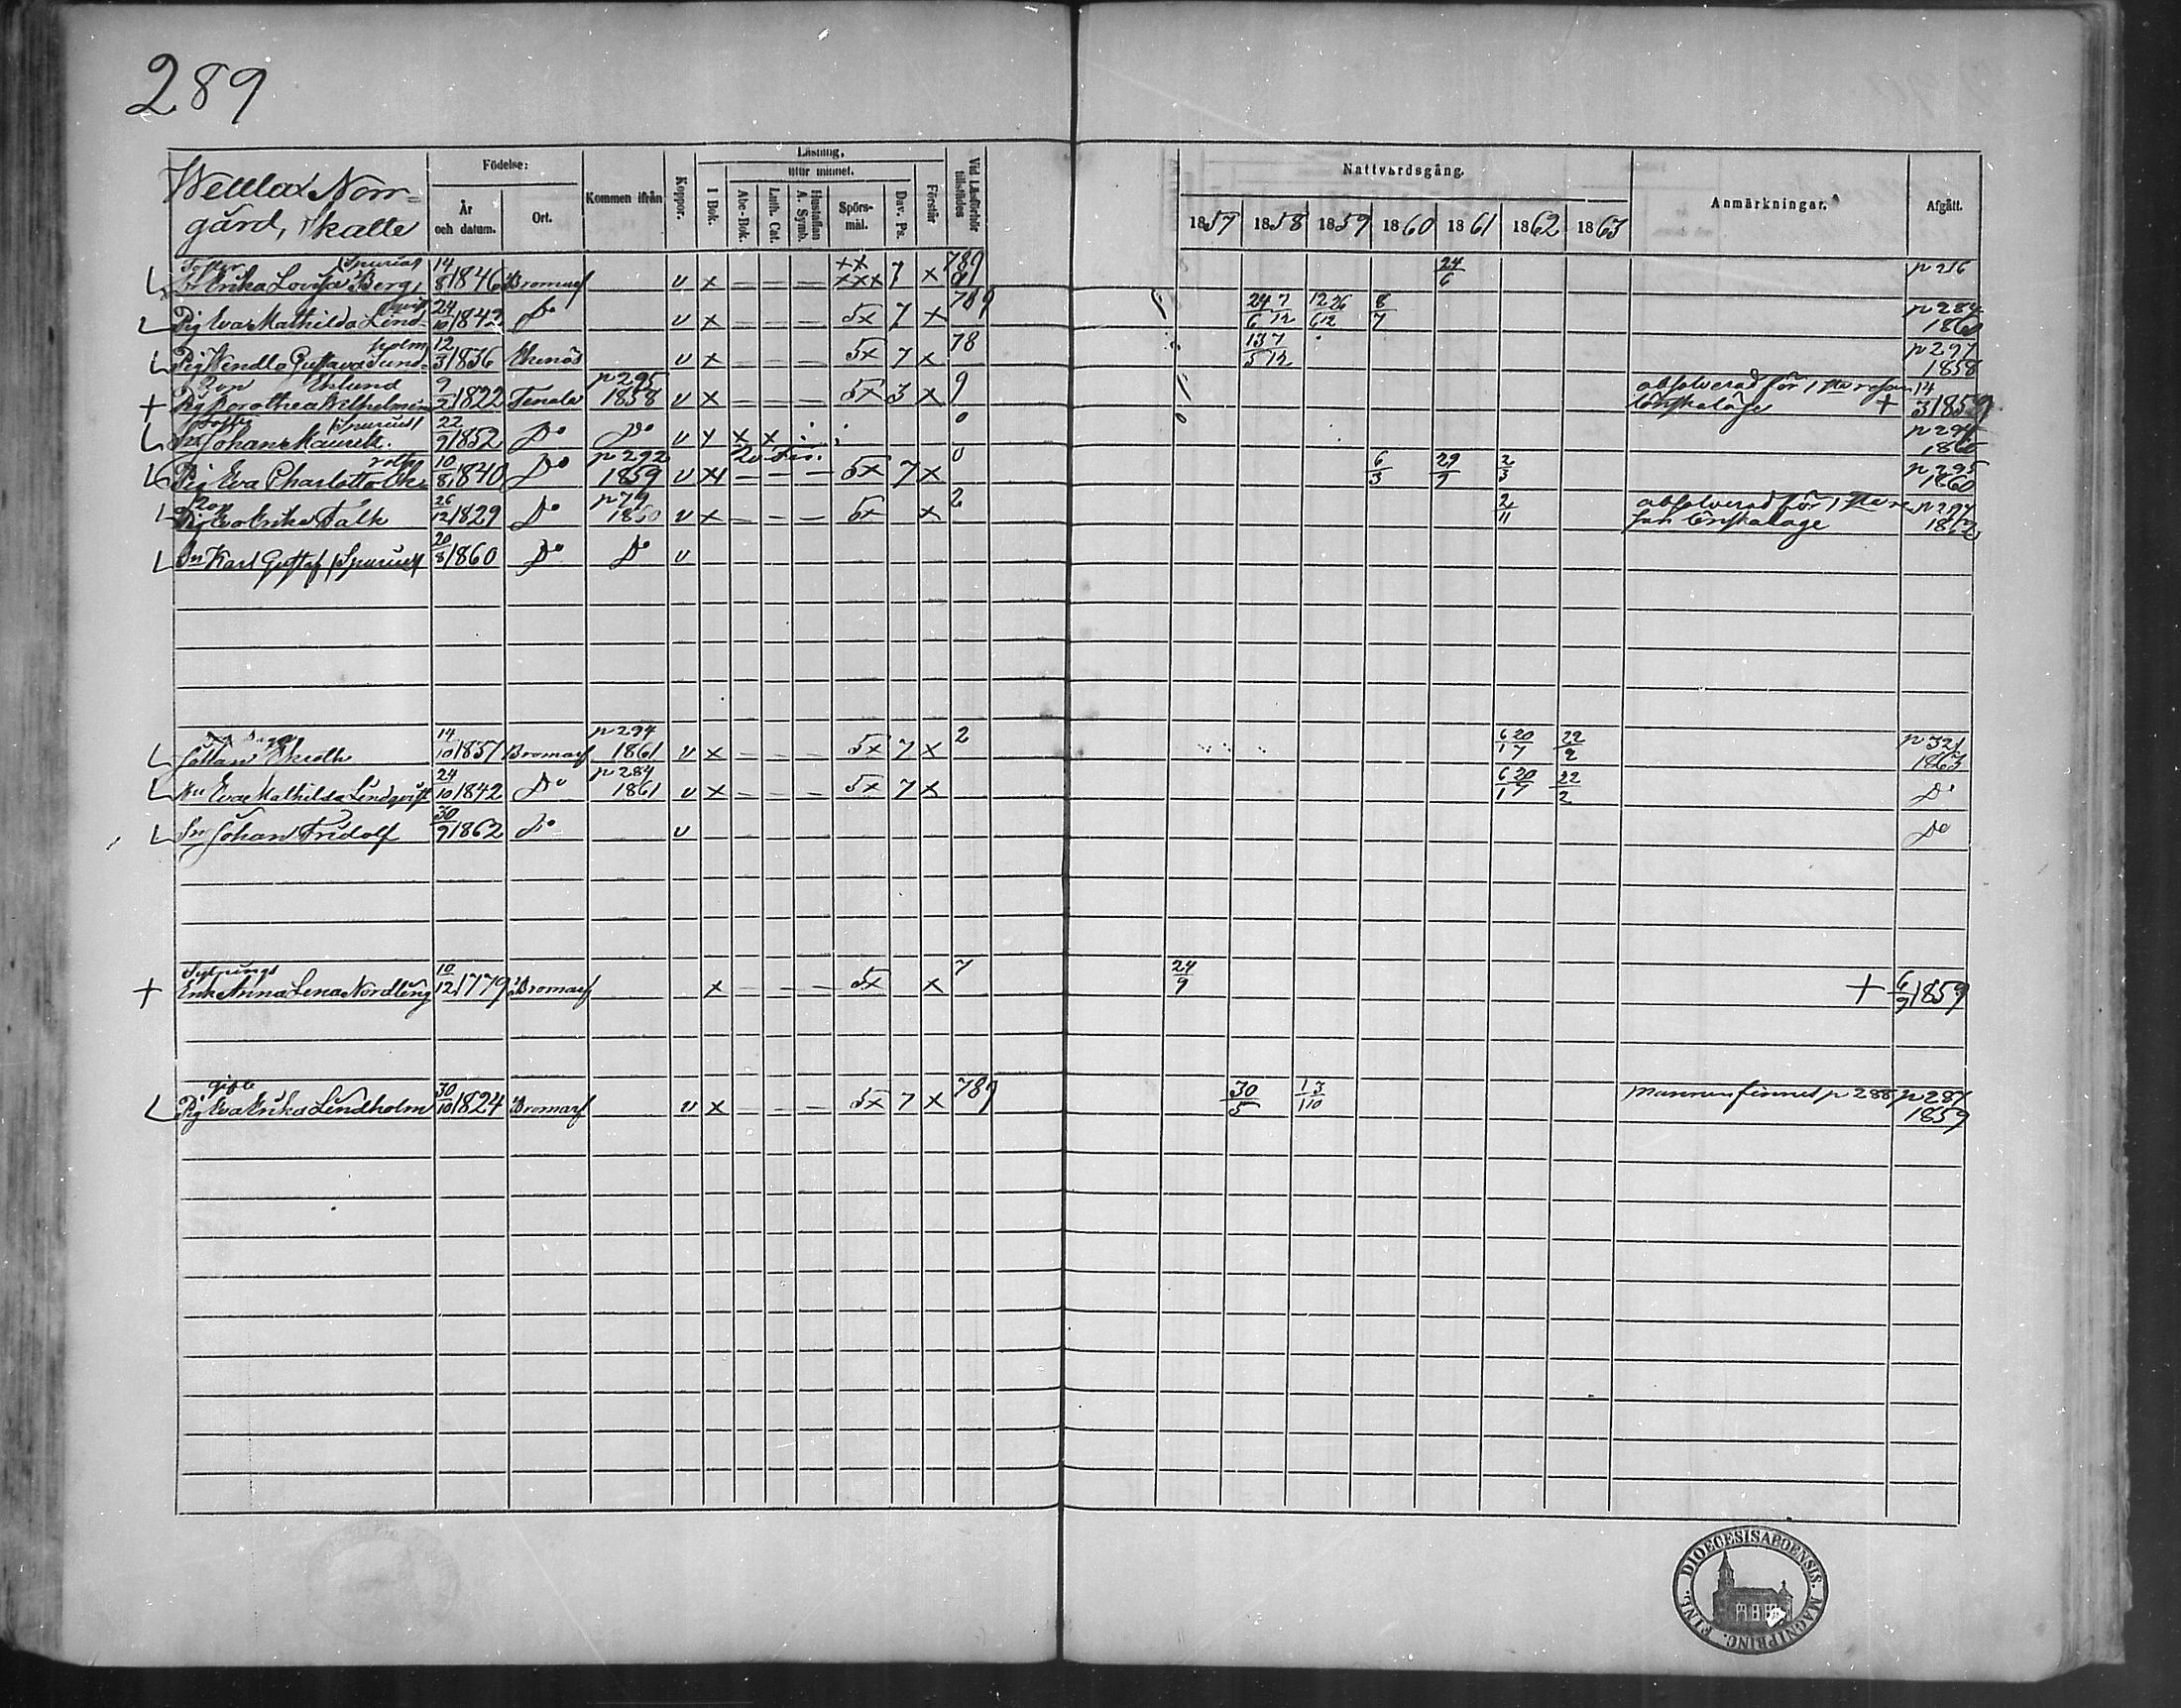 289
Wettlax Norr-
gård, Skatte
Födelse:
År
och datum.
Ort.
Kommen ifrån
Koppor.
Läsning,
I Bok.
utur minnet.
Abc-Bok.
Luth. Cat.
Hustaflan
A. Symb.
Spörs-
mål.
Dav. Ps.
Förstår
Vid Läsförhör
tillstädes
Nattvardsgång.
1857 1858 1859 1860 1861 1862 1863
Anmärkningar.
Afgått.
Erika Lovisa Berg, Spuria 14/8 1846 Bromarf v x – – – xx xxx 7 x 789 24/6 p 216
Pig Eva Mathilda Lindqvist 24/10 1842 Do v x – – – 5x 7 x 789 24 7/6 12 12 26/6 12 8/7 p 284 1860
Pig Wendla Gustava Sundholm 12/3 1836 Ekenäs v x – – – 5x 7 x 78 13 7/5 12 p 297 1858
+ Pig Dorothea Wilhelmina Ehlund 9/2 1822 Tenala p 295 1858 v x – – – 5x 3 x 9 absolverad för 1sta resan lönskaläge + 14/3 1859
Sn Johan Maurits Spurius 22/9 1852 Do Do v x x x 0 p 294 1860
Pig Eva Charlotta 10/8 1840 Do p 292 1859 v x – – – 5x 7 x 0 6/3 29/9 2/3 p 295 1860
Pig Eva Erika Falk 26/12 1829 Do p 79 1860 v x – – – 5x x 2 2/11 absolverad för 1sta re-
san lönskaläge p 294 1862
Sn Karl Gustaf Spurius 20/8 1860 Do Do v
Johan 14/10 1837 Bromarf p 294 1861 v x – – – 5x 7 x 2 6 20/1 7 22/2 p 321 1863
Hu Eva Mathilda Lindqvist 24/10 1842 Do p 284 1861 v x – – – 5x 7 x 6 20/1 7 22/2 Do
Sn Johan Fridolf 30/9 1862 Do v Do
+ Enk Anna Lena Nordling 10/12 1779 Bromarf x – – – 5x x 7 24/9 + 6/9 1859
gifte
Pig Eva Erika Lindholm 30/10 1824 Bromarf v x – – – 5x 7 x 789 30/5 1 3/1 10 mannen finnes p 288 p 287
1859
DIOECESIS ABOENSIS. MAGNI PRINC. FINL.